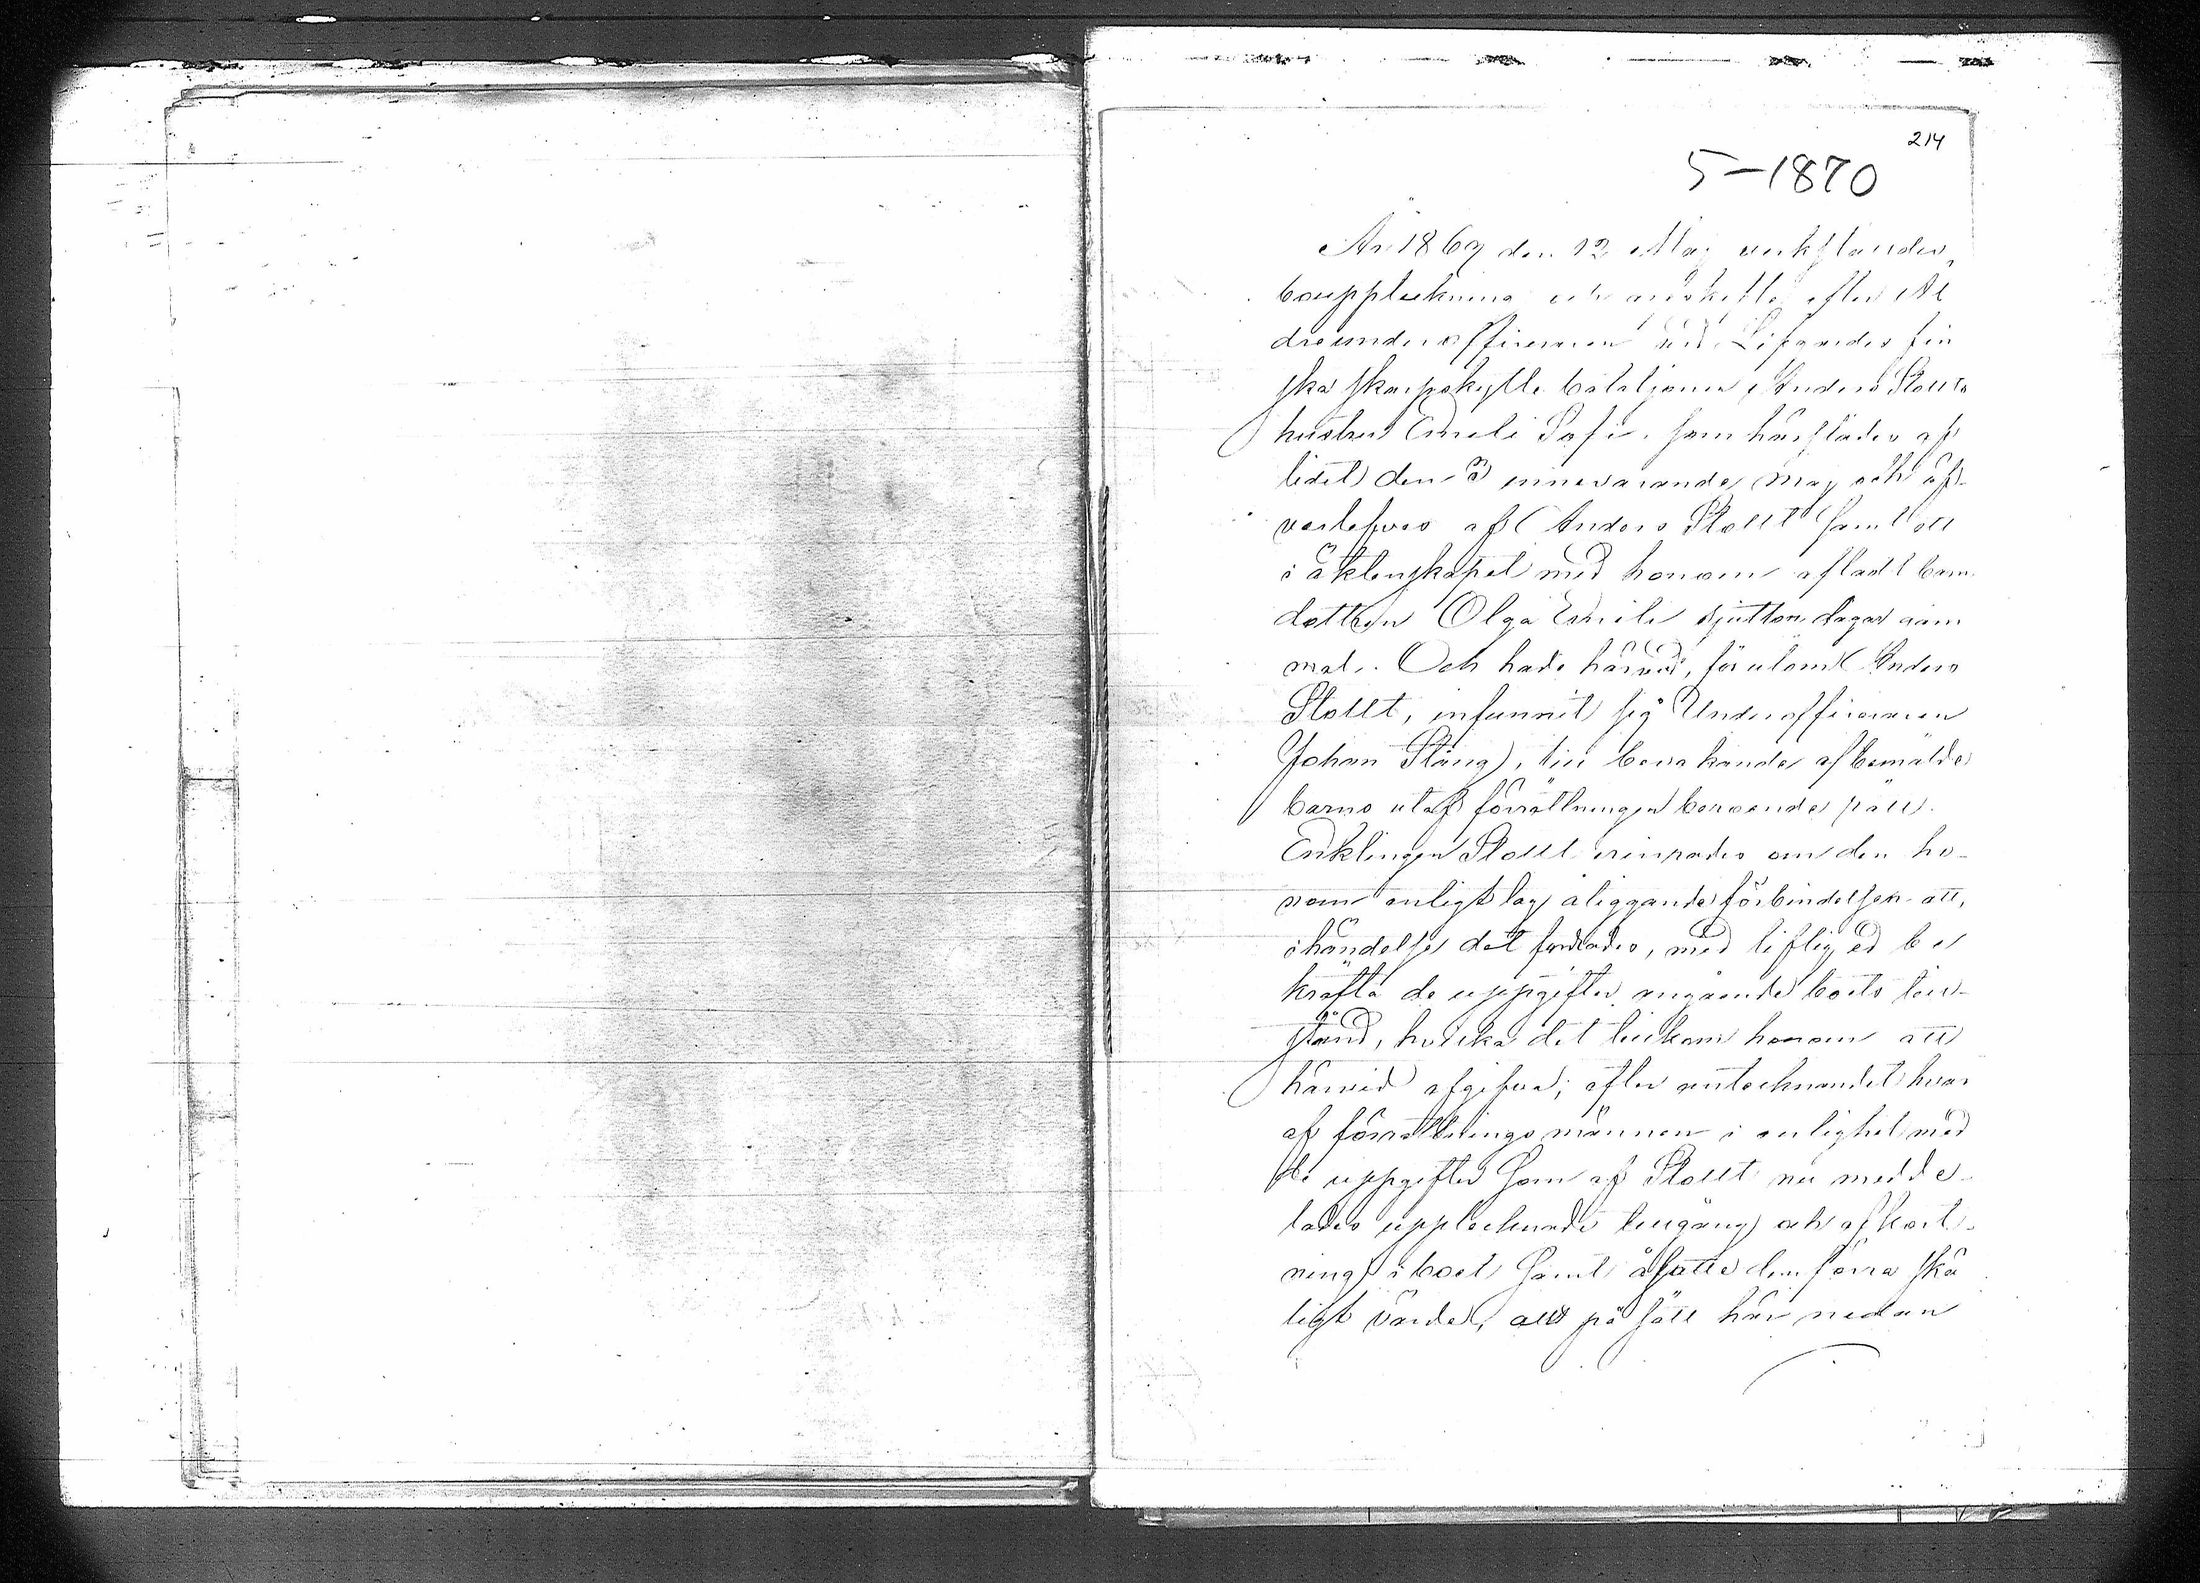 214
5-1870
År 1869 den 12 Maj verkstäldes
bouppteckning och arfskifte efter Äl
dreunderofficeraren vid Lifgardes fin
ska skarpskytte bataljonen Anders Stollts
hustru Emeli Sofi. som härstädes af
lidit den 3 innevarande Maj och öf-
verlefves af Anders Stollt samt ett
i äktenskapet med honom afladt barn
dottren Olga Emili sjutton dagar gam
mal. Och hade härvid, förutom Anders
Stollt, infunnit sig Underofficeraren
Johan Stång, till bevakande af bemälde
barns utaf förrättningen beroende rätt.
Enklingen Stollt erinrades om den ho-
nom enligt lag åliggande förbindelsen att,
i händelse det fordrades, med liflig ed be
kräfta de uppgifter angående boets till-
stånd, hvilka det tillkom honom att
härvid afgifva; efter antecknandet hvar
af förrättningsmännen i enlighet med
de uppgifter som af Stollt nu medde-
lades upptecknade tillgång och afkort-
ning i boet samt åsatte den förra skä
ligt värde, allt på sätt här nedan